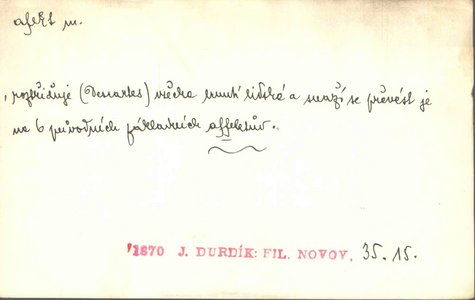 afekt m.
, roztřiďuje (Descartes) všecka hnutí lidská a snaží se převést je
na 6 původních základních affektův.
'1870 J. DURDÍK: FIL. NOVOV. 35.15.